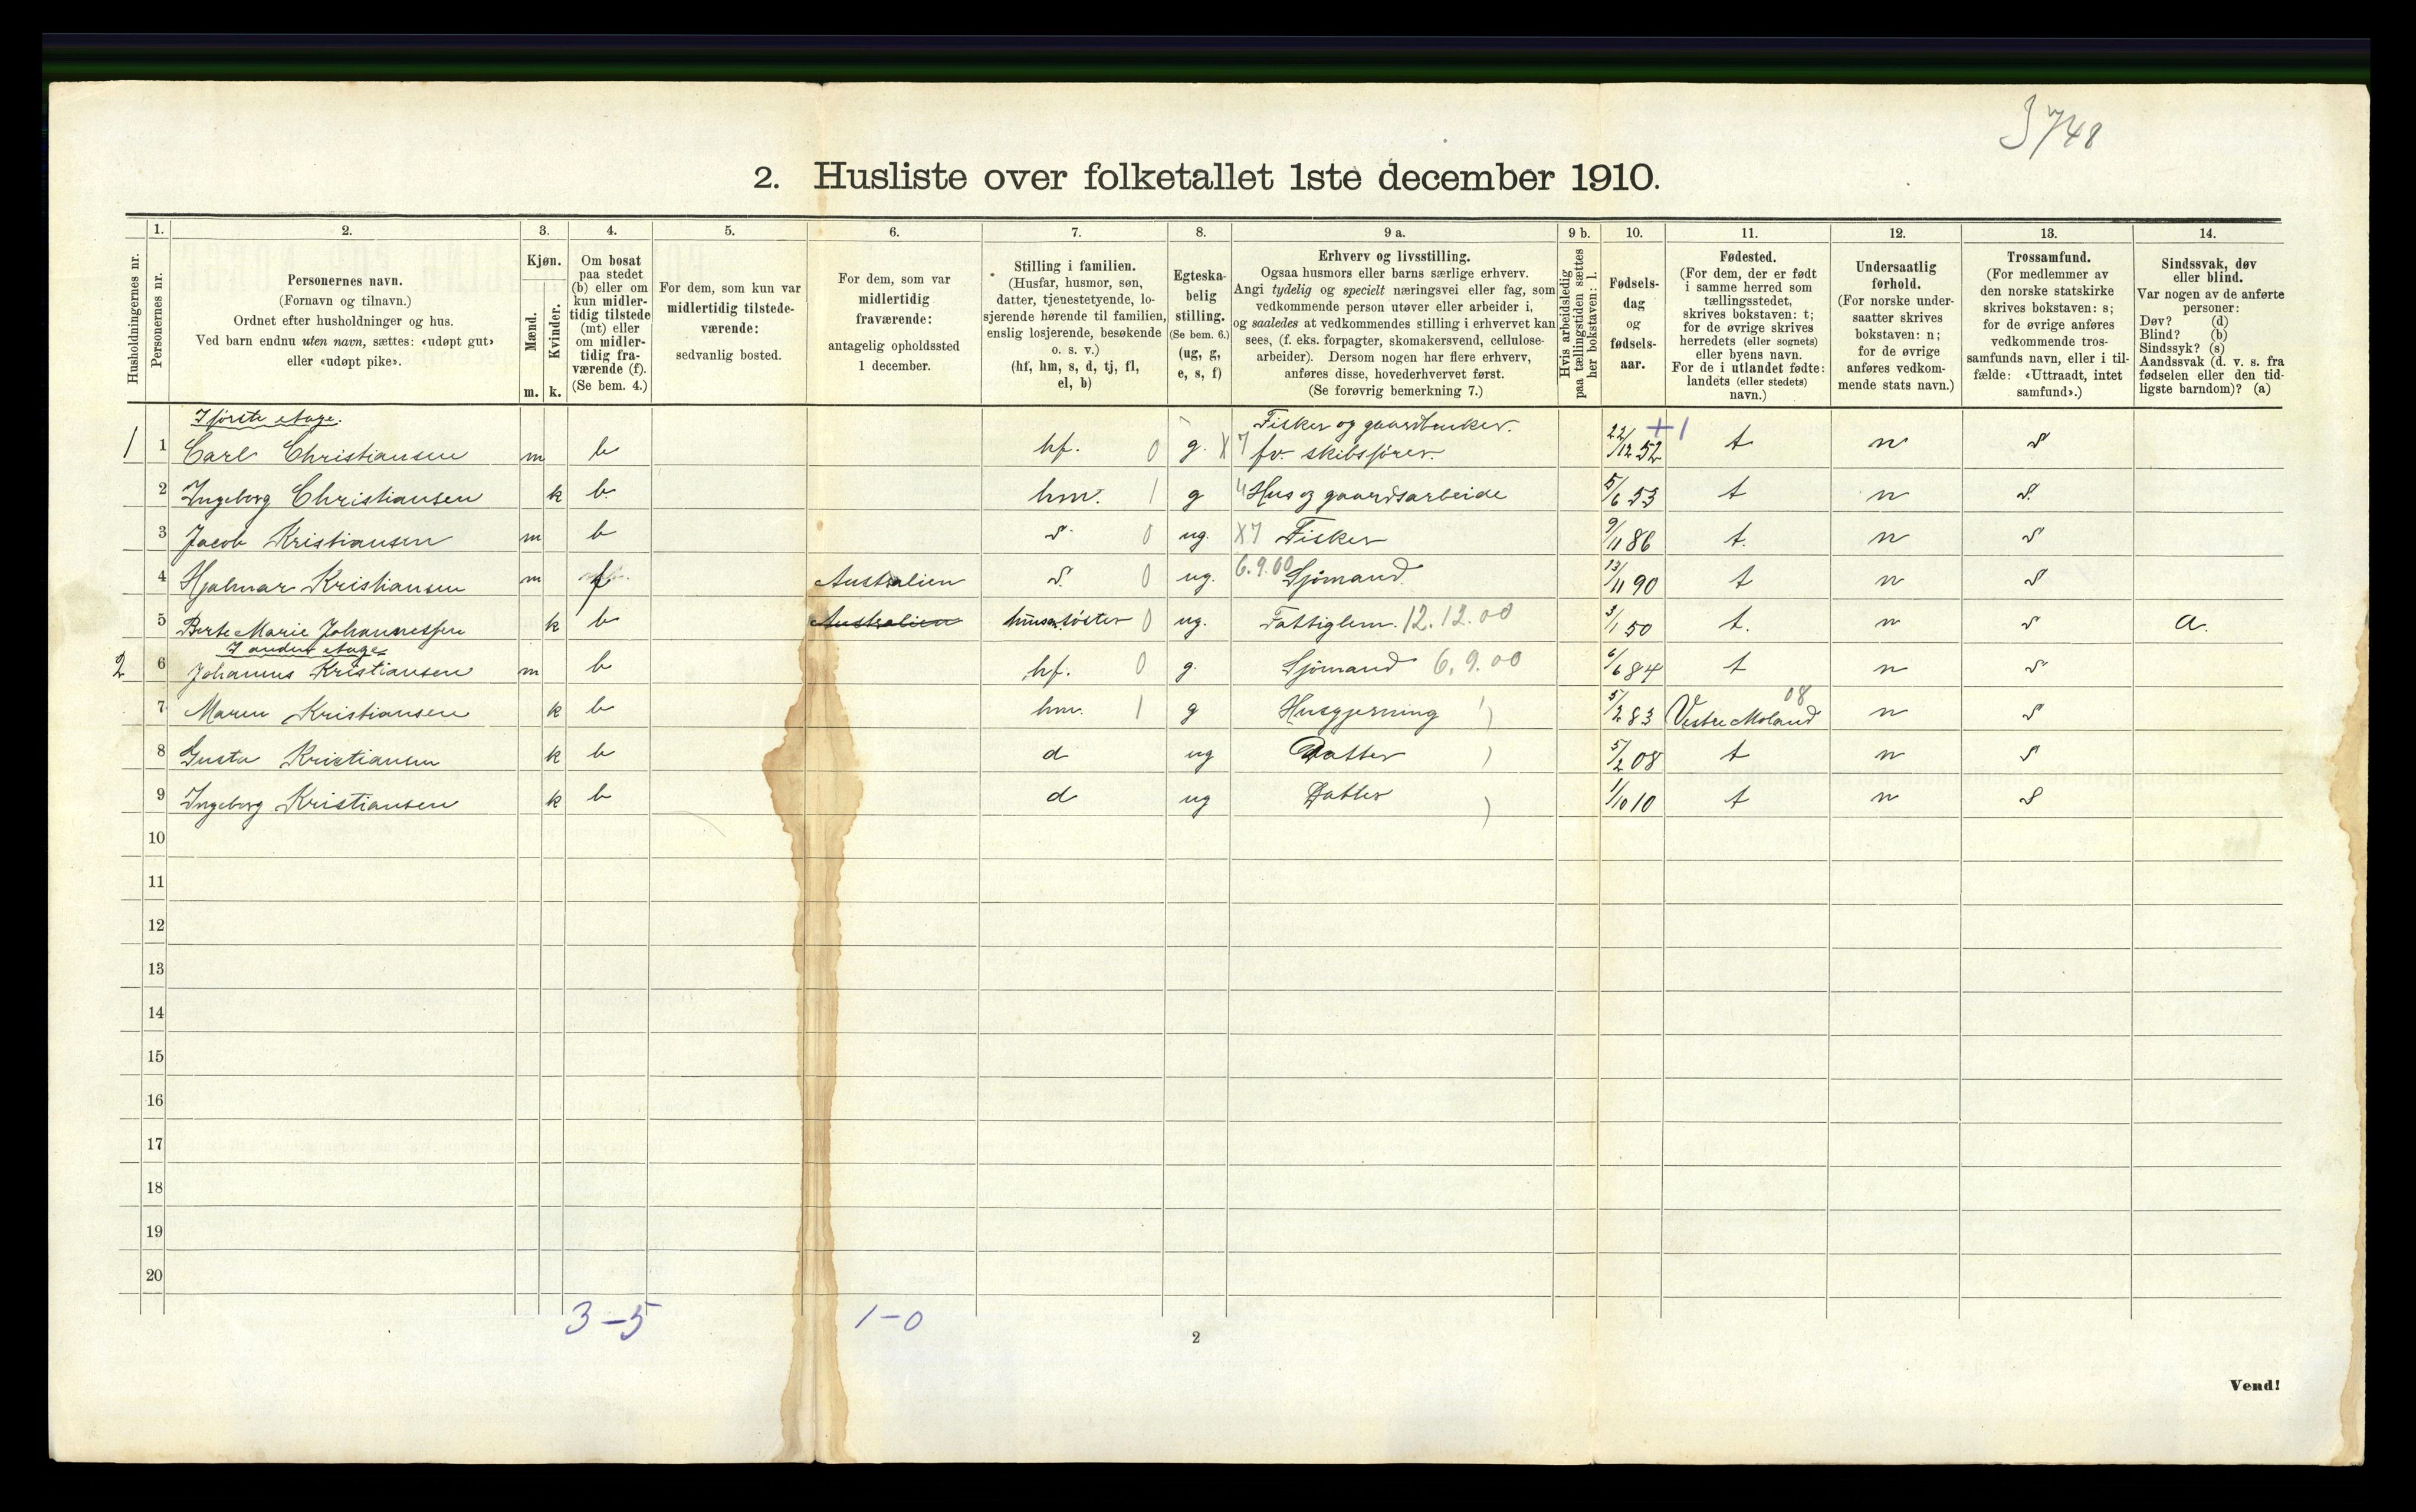 3748
2. Husliste over folketallet 1ste december 1910.
Husholdningernes nr.
1. Personernes nr.
2. Personernes navn.
(Fornavn og tilnavn.)
Ordnet efter husholdninger og hus.
Ved barn endnu uten navn, sættes: «udøpt gut»
eller «udøpt pike».
3. Kjøn.
Mænd. m.
Kvinder. k.
4. Om bosat
paa stedet
(b) eller om
kun midler-
tidig tilstede
(mt) eller
om midler-
tidig fra-
værende (f).
(Se bem. 4.)
5. For dem, som kun var
midlertidig tilstede-
værende:
sedvanlig bosted.
6. For dem, som var
midlertidig
fraværende:
antagelig opholdssted
1 december.
7. Stilling i familien.
(Husfar, husmor, søn,
datter, tjenestetyende, lo-
sjerende hørende til familien,
enslig losjerende, besøkende
o. s. v.)
(hf, hm, s, d, tj, fl,
el, b)
8. Egteska-
belig
stilling.
(Se bem. 6.)
(ug, g,
e, s, f)
9 a. Erhverv og livsstilling.
Ogsaa husmors eller barns særlige erhverv.
Angi tydelig og specielt næringsvei eller fag, som
vedkommende person utøver eller arbeider i,
og saaledes at vedkommendes stilling i erhvervet kan
sees, (f. eks. forpagter, skomakersvend, cellulose-
arbeider). Dersom nogen har flere erhverv,
anføres disse, hovederhvervet først.
(Se forøvrig bemerkning 7.)
9 b. Hvis arbeidsledig
paa tællingstiden sættes
her bokstaven: l.
10. Fødsels-
dag
og
fødsels-
aar.
11. Fødested.
(For dem, der er født
i samme herred som
tællingsstedet,
skrives bokstaven: t;
for de øvrige skrives
herredets (eller sognets)
eller byens navn.
For de i utlandet fødte:
landets (eller stedets)
navn.)
12. Undersaatlig
forhold.
(For norske under-
saatter skrives
bokstaven: n;
for de øvrige
anføres vedkom-
mende stats navn.)
13. Trossamfund.
(For medlemmer av
den norske statskirke
skrives bokstaven: s;
for de øvrige anføres
vedkommende tros-
samfunds navn, eller i til-
fælde: «Uttraadt, intet
samfund».)
14. Sindssvak, døv
eller blind.
Var nogen av de anførte
personer:
Døv? (d)
Blind? (b)
Sindssyk? (s)
Aandssvak (d. v. s. fra
fødselen eller den tid-
ligste barndom)? (a)
I förste etage. Fisker og gaardbruker.
1 1 Carl Christiansen m b hf. 0 g. X 7 fv. skibsförer. 22/12 52 +1 t n s
2 Ingeborg Christiansen k b. hm. 1 g 4 Hus og gaardsarbeide 5/6 53 t n s.
3 Jacob Kristiansen m b s. 0 ug. X7 Fisker 9/11 86 t. n s
4 Hjalmar Kristiansen m f Australien s. 0 ug. 6.9.00 Sjömand. 13/11 90 t n s
5 Berte Marie Johannessen k b Australien söster 0 ug. Fattiglem. 12.12.00 3/1 50 t. n s a.
I anden etage
2 6 Johannes Kristiansen m b hf. 0 g. Sjömand 6.9.00 6/6 84 t n s
7 Maren Kristiansen k b hm. 1 g Husgjerning 5/2 83 Vestre Moland 08 n s
8 Gusta Kristiansen k b d ug Datter 5/2 08 t n s
9 Ingeborg Kristiansen k b d ug Datter 1/10 10 t n s
10
11
12
13
14
15
16
17
18
19
20
3-5 1-0
2
Vend!